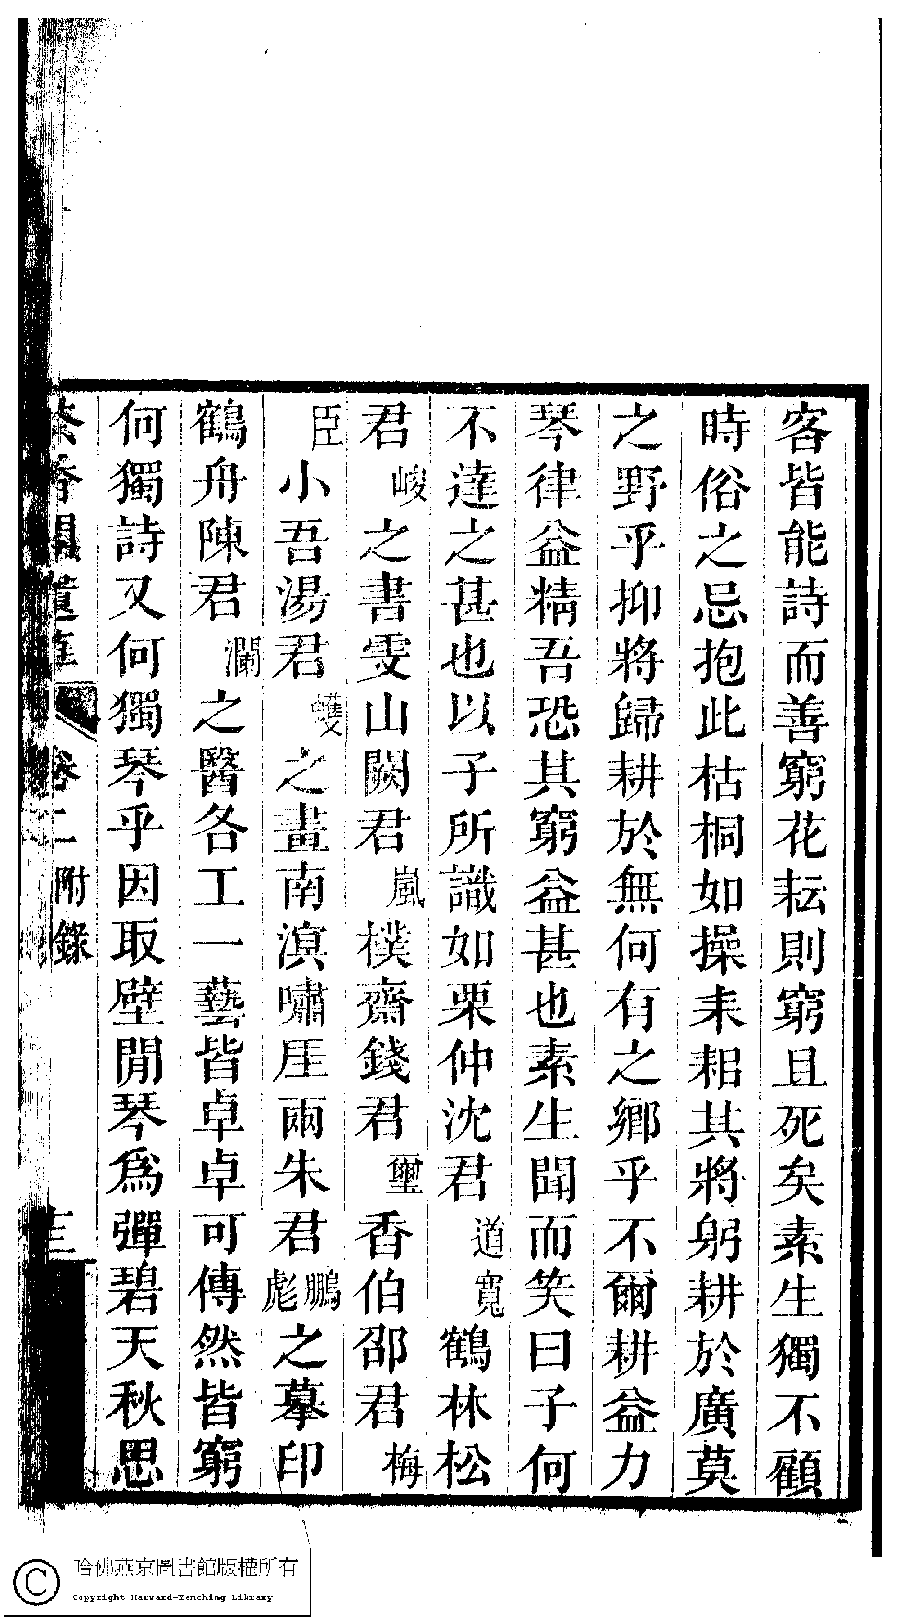 客皆能詩而善窮花耘則窮且死矣素生獨不顧
時俗之忌抱此枯桐如操耒耜其將躬耕於廣莫
之野乎抑將歸耕於無何有之鄉乎不爾耕益力
琴律益精吾恐其窮益甚也素生聞而笑曰子何
不達之甚也以子所識如栗仲沈君道寬鶴林松
君峻之書雯山闕君嵐樸齋錢君璽香伯邵君梅
臣小吾湯君㕠之畫南溟嘯厓兩朱君鵬彪之摹印
鶴舟陳君瀾之醫各工一藝皆卓卓可傳然皆窮
何獨詩又何獨琴乎因取壁閒琴爲彈碧天秋思
卷二 附錄
哈佛燕京圖書館版權所有
Copyright Harvard-Yenching Library